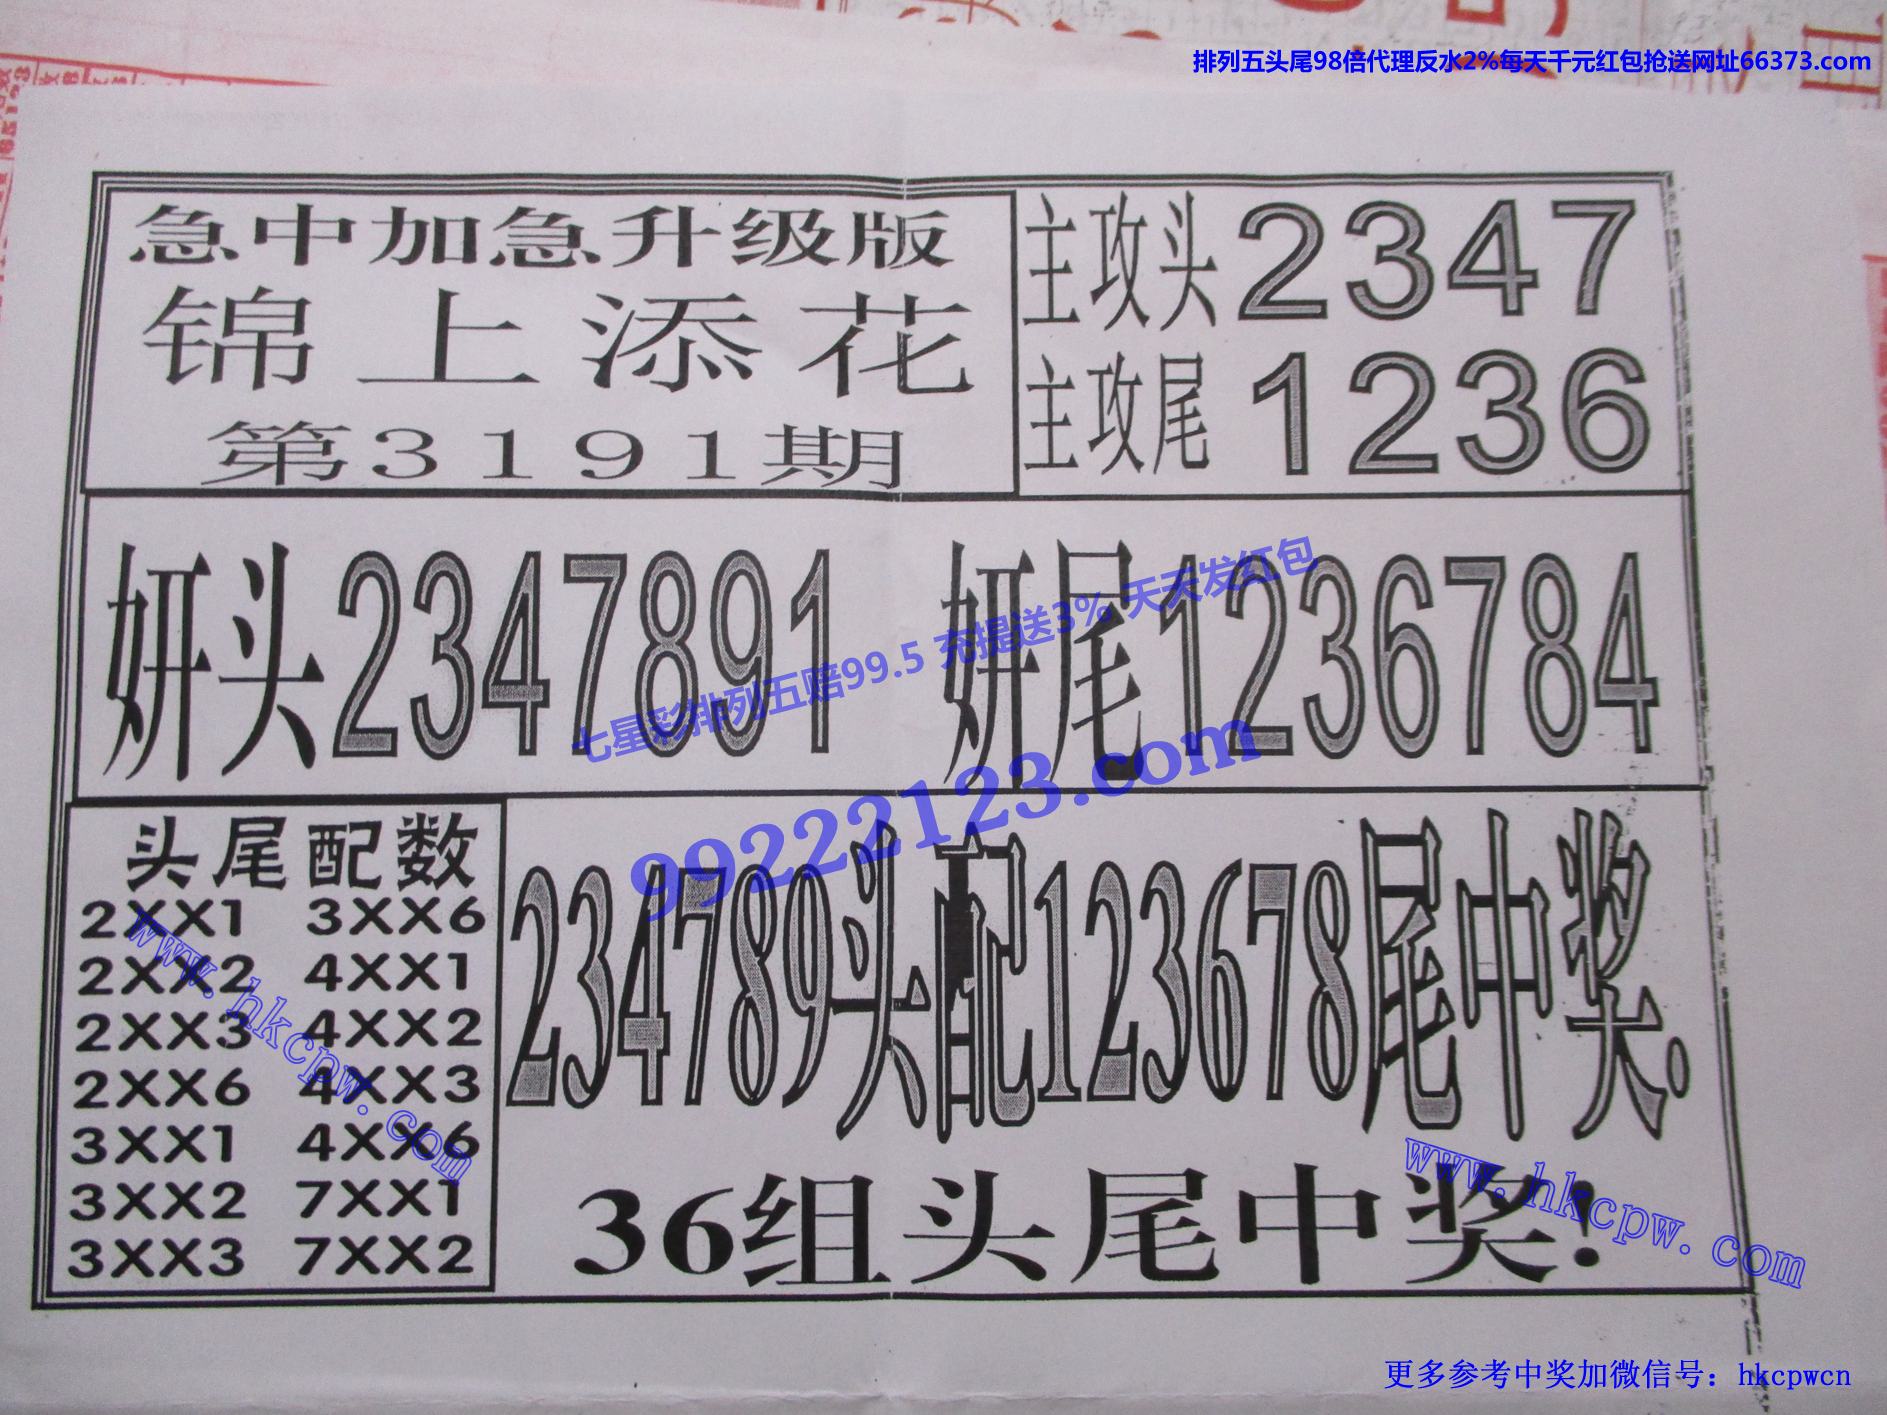 排列五头尾98倍代理反水2%每天千元红包抢送网址66373.com
急中加急升级版
锦上添花
第3191期
主攻头2347
主攻尾1236
妍头2347891
妍尾1236784
七星彩排列五赔99.5 充提送3% 天天发红包
99222123.com
头尾配数
2XX1 3XX6
2XX2 4XX1
2XX3 4XX2
2XX6 4XX3
3XX1 4XX6
3XX2 7XX1
3XX3 7XX2
www.hkcpw.com
234789头配123678尾中奖.
36组头尾中奖!
www.hkcpw.com
更多参考中奖加微信号：hkcpwcn